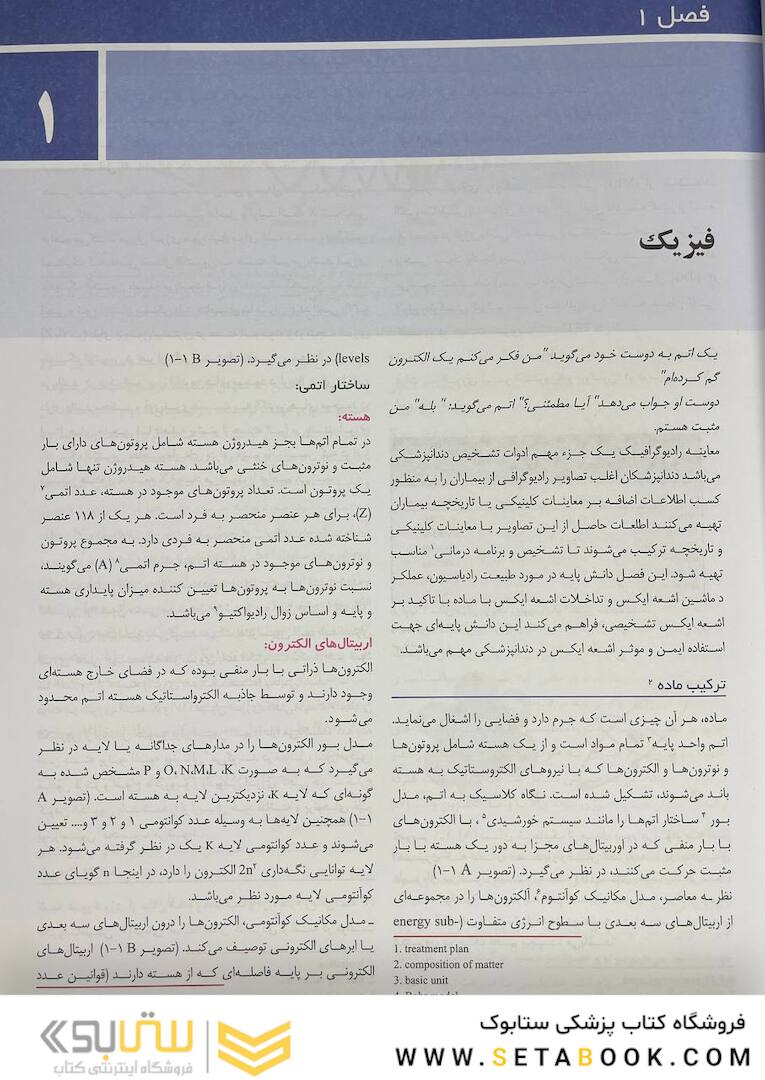 فصل ۱
۱
فیزیک
یک اتم به دوست خود می‌گوید "من فکر می‌کنم یک الکترون
گم کرده‌ام"
دوست او جواب می‌دهد" آیا مطمئنی؟" اتم می‌گوید: " بله" من
مثبت هستم.
معاینه رادیوگرافیک یک جزء مهم ادوات تشخیص دندانپزشکی
می‌باشد دندانپزشکان اغلب تصاویر رادیوگرافی از بیماران را به منظور
کسب اطلاعات اضافه بر معاینات کلینیکی یا تاریخچه بیماران
تهیه می‌کنند اطلعات حاصل از این تصاویر با معاینات کلینیکی
و تاریخچه ترکیب می‌شوند تا تشخیص و برنامه درمانی۱ مناسب
تهیه شود. این فصل دانش پایه در مورد طبیعت رادیاسیون، عملکر
د ماشین اشعه ایکس و تداخلات اشعه ایکس با ماده با تاکید بر
اشعه ایکس تشخیصی، فراهم می‌کند این دانش پایه‌ای جهت
استفاده ایمن و موثر اشعه ایکس در دندانپزشکی مهم می‌باشد.
ترکیب ماده ۲
ماده، هر آن چیزی است که جرم دارد و فضایی را اشغال می‌نماید.
اتم واحد پایه۳ تمام مواد است و از یک هسته شامل پروتون‌ها
و نوترون‌ها و الکترون‌ها که با نیروهای الکتروستاتیک به هسته
باند می‌شوند، تشکیل شده است. نگاه کلاسیک به اتم، مدل
بور ۴ ساختار اتم‌ها را مانند سیستم خورشیدی۵ ، با الکترون‌های
با بار منفی که در اوربیتال‌های مجزا به دور یک هسته با بار
مثبت حرکت می‌کنند، در نظر می‌گیرد. (تصویر ۱-۱ A)
نظر ـه معاصر، مدل مکانیک کوآنتوم۶، الکترون‌ها را در مجموعه‌ای
از اربیتال‌های سه بعدی با سطوح انرژی متفاوت (energy sub-
1. treatment plan
2. composition of matter
3. basic unit
levels) در نظر می‌گیرد. (تصویر ۱-۱ B)
ساختار اتمی:
هسته:
در تمام اتم‌ها بجز هیدروژن هسته شامل پروتون‌های دارای بار
مثبت و نوترون‌های خنثی می‌باشد. هسته هیدروژن تنها شامل
یک پروتون است. تعداد پروتون‌های موجود در هسته، عدد اتمی۷
(Z)، برای هر عنصر منحصر به فرد است. هر یک از ۱۱۸ عنصر
شناخته شده عدد اتمی منحصر به فردی دارد. به مجموع پروتون
و نوترون‌های موجود در هسته اتم، جرم اتمی۸ (A) می‌گویند،
نسبت نوترون‌ها به پروتون‌ها تعیین کننده میزان پایداری هسته
و پایه و اساس زوال رادیواکتیو۹ می‌باشد.
اربیتال‌های الکترون:
الکترون‌ها ذراتی با بار منفی بوده که در فضای خارج هسته‌ای
وجود دارند و توسط جاذبه الکترواستاتیک هسته اتم محدود
می‌شود.
مدل بور الکترون‌ها را در مدارهای جداگانه یا لایه در نظر
می‌گیرد که به صورت K، L،M،N،O و P مشخص شده به
گونه‌ای که لایه K، نزدیکترین لایه به هسته است. (تصویر A
۱-۱) همچنین لایه‌ها به وسیله عدد کوانتومی ۱ و ۲ و ۳ و.... تعیین
می‌شوند و عدد کوانتومی لایه K یک در نظر گرفته می‌شود. هر
لایه توانایی نگه‌داری 2n² الکترون را دارد، در اینجا n گویای عدد
کوآنتومی لایه مورد نظر می‌باشد.
ـ مدل مکانیک کوآنتومی، الکترون‌ها را درون اربیتال‌های سه بعدی
یا ابرهای الکترونی توصیف می‌کند. (تصویر ۱-۱ B) اربیتال‌های
الکترونی بر پایه فاصله‌ای که از هسته دارند (قوانین عدد
ستابوک
فروشگاه اینترنتی کتاب
فروشگاه کتاب پزشکی ستابوک
WWW.SETABOOK.COM